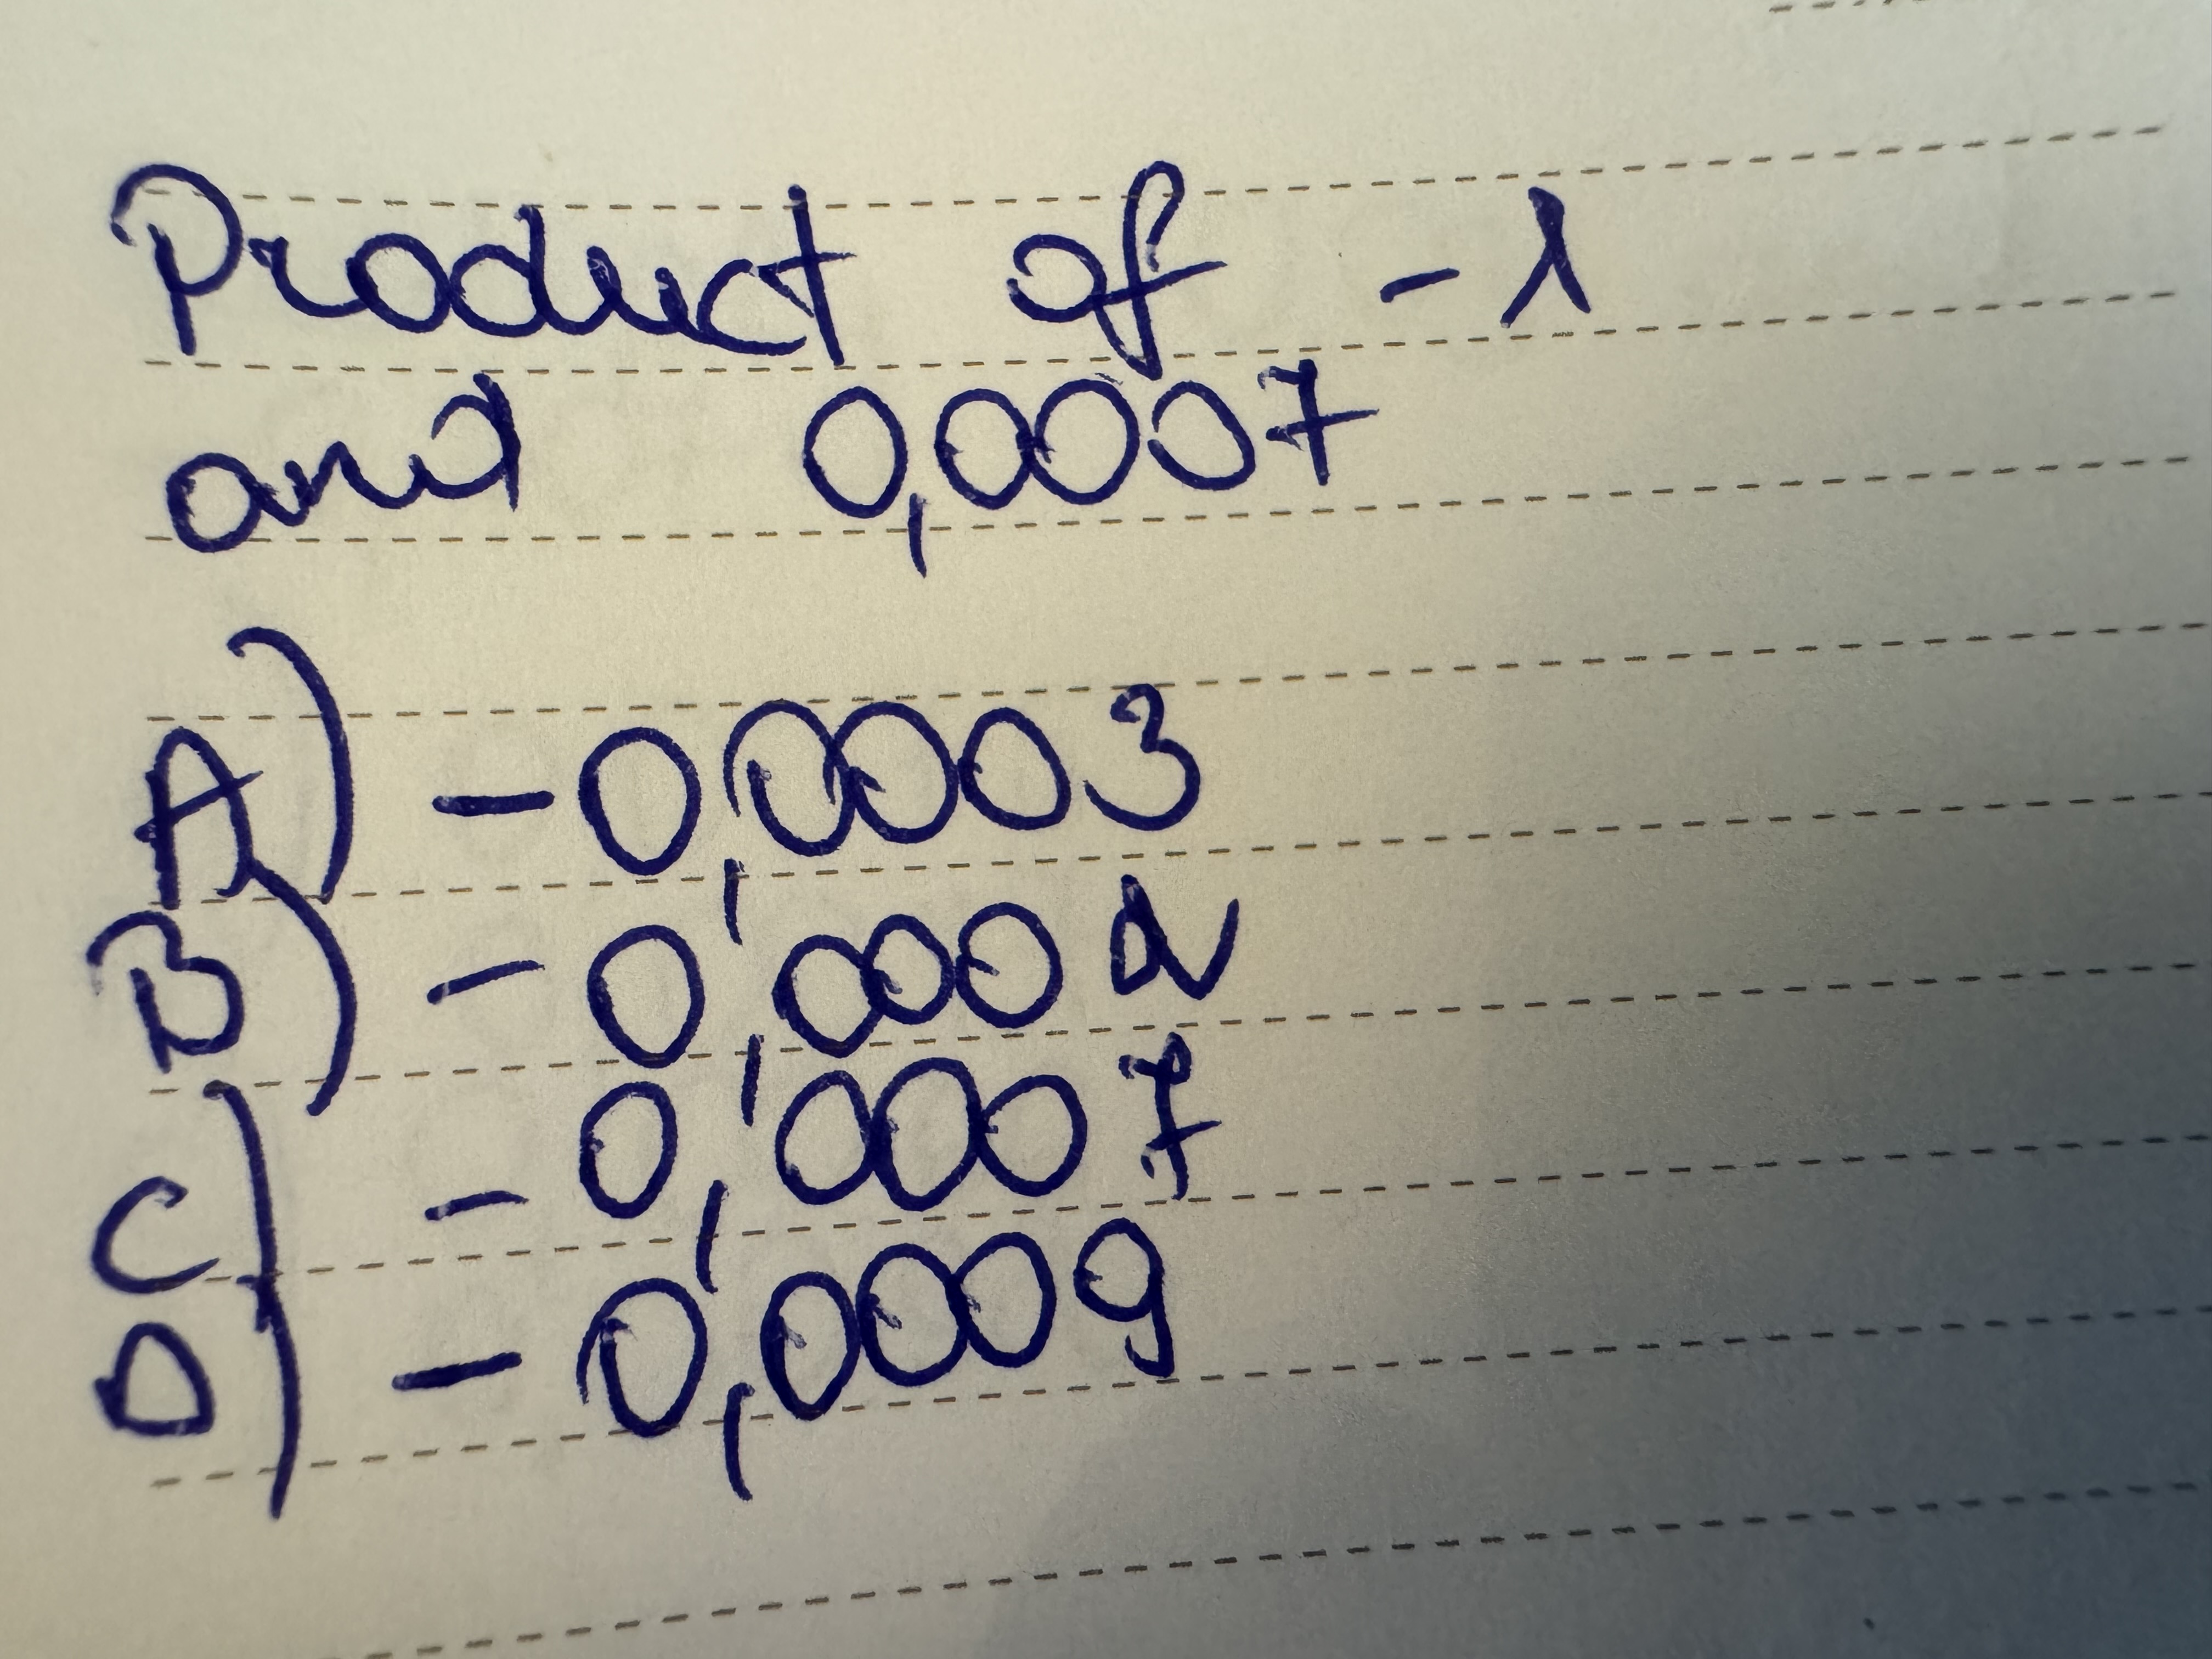 Product of -1
and 0,0007
A) -0,0003
B) -0,0002
C) -0,0007
D) -0,0009